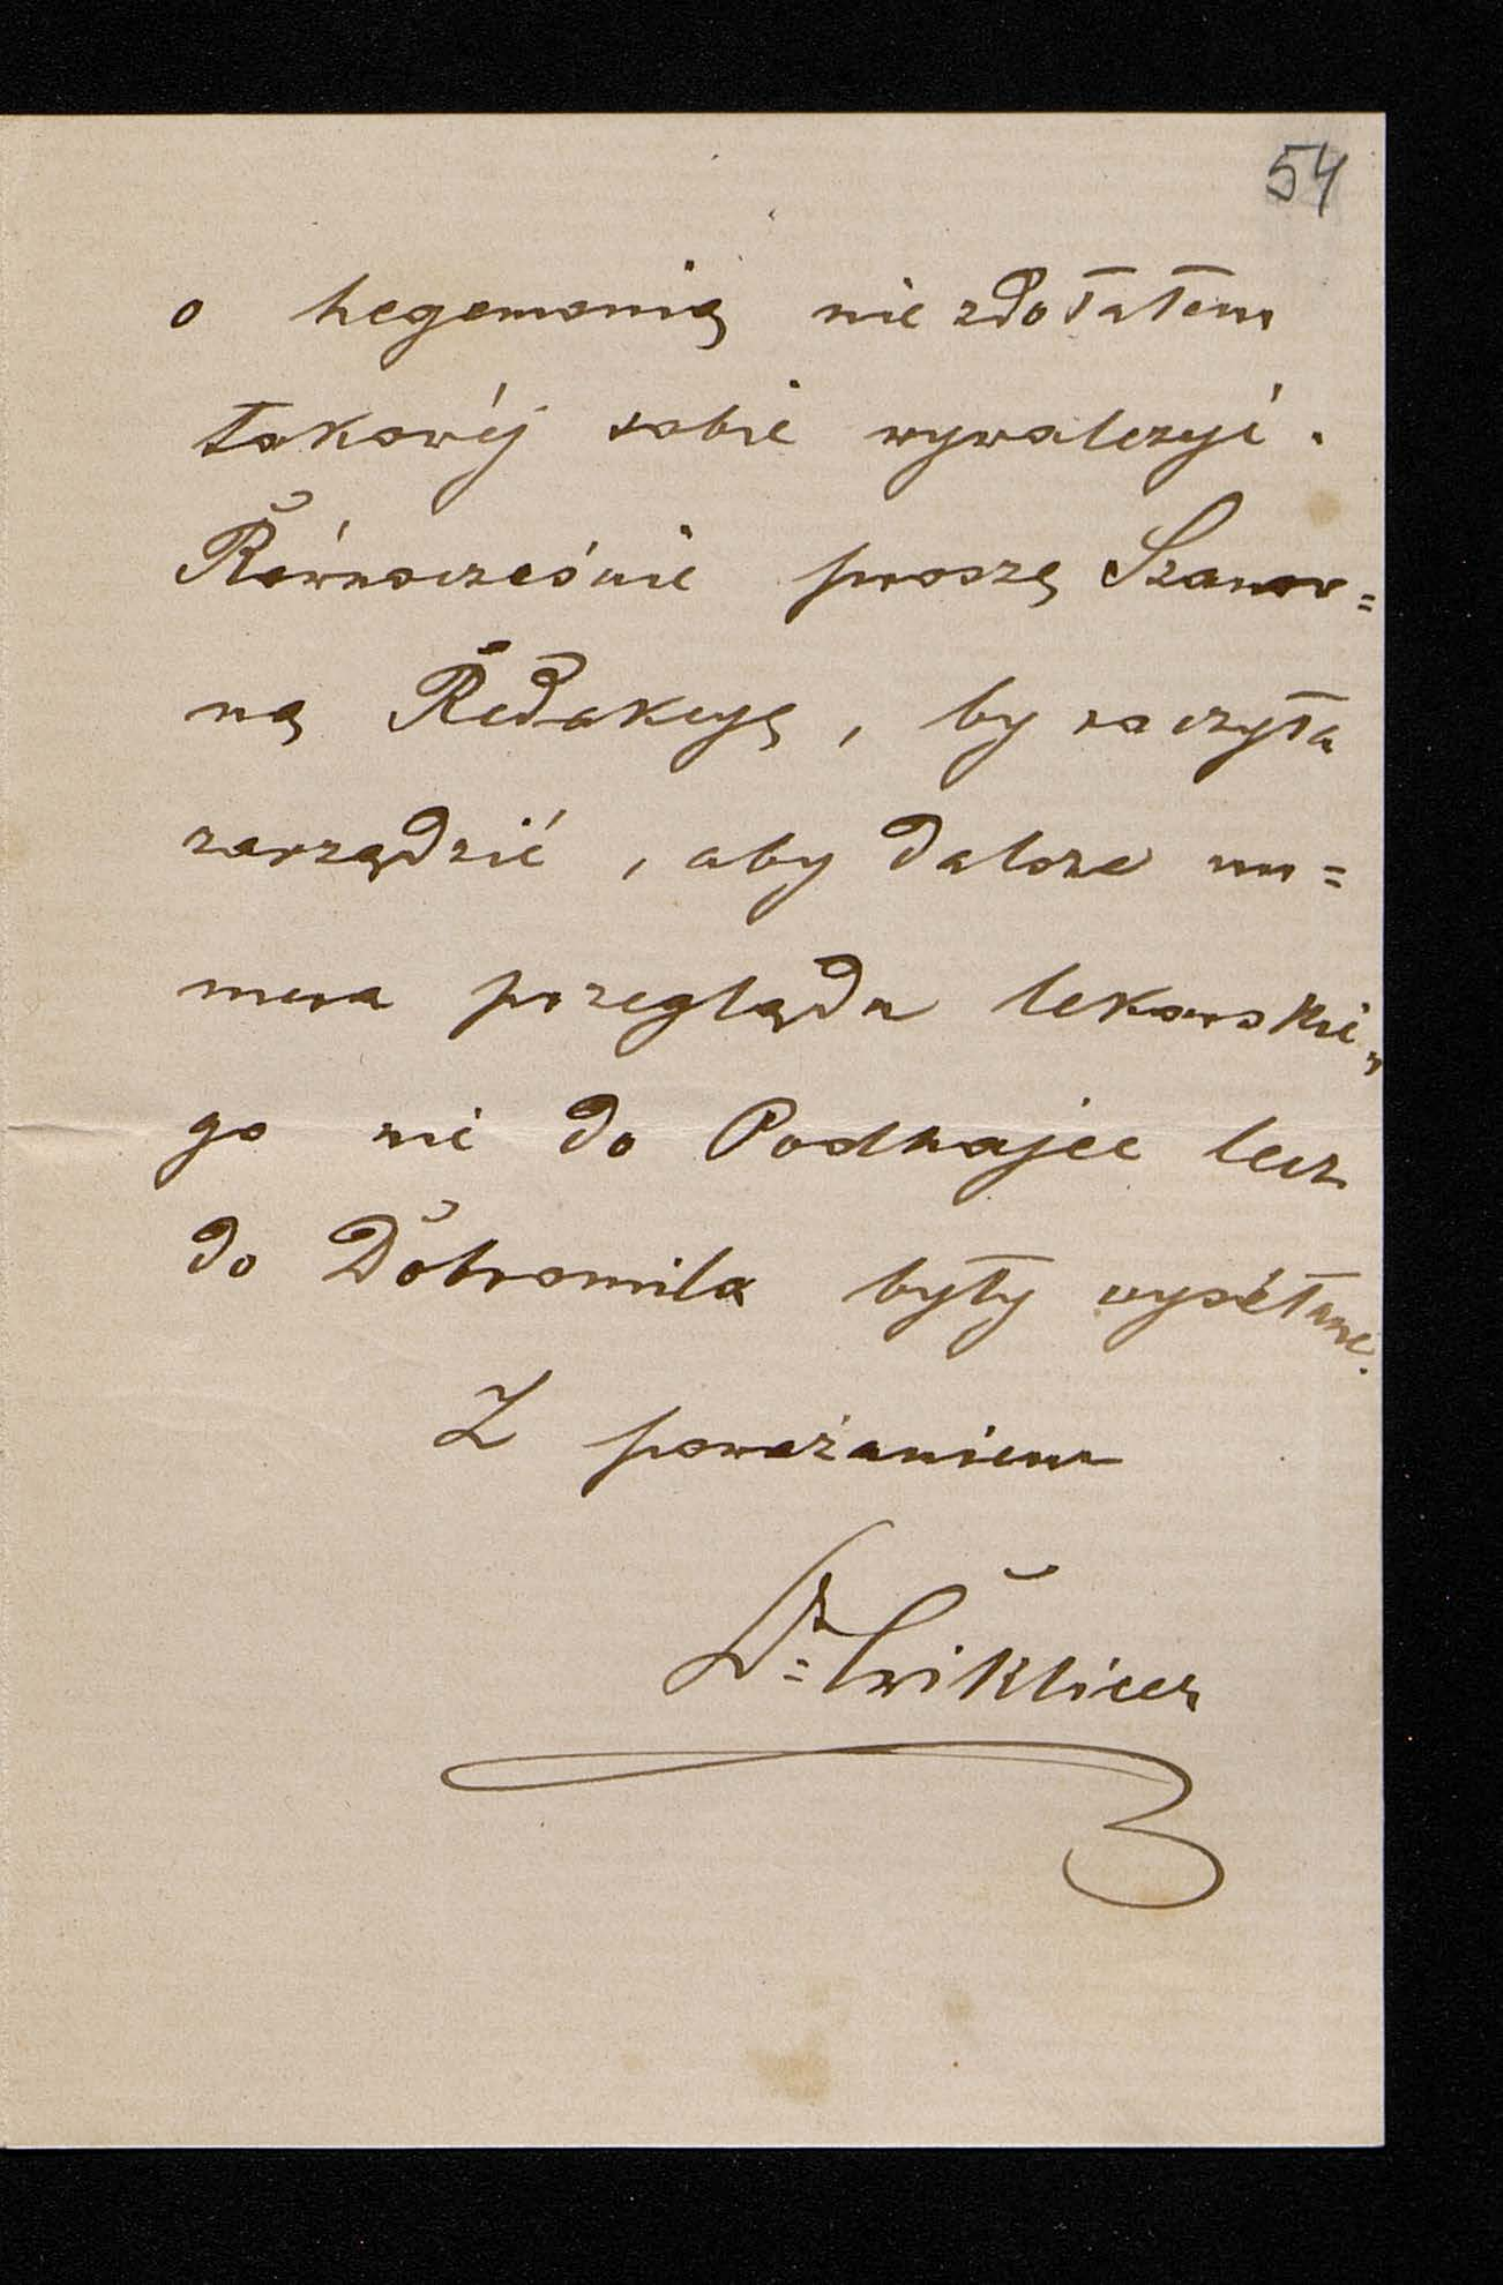 54
o hegemonią nie zdołałem
takowéj sobie wywalczyć.
Równocześnie proszę Szanow=
ną Redakcyę, by raczyła
zarządzić, aby dalsze nu=
mera przeglądu lekarskie„
go nie do Podhajec lecz
do Dobromila były wysełane.
Z poważaniem
Dr Ćwiklicer